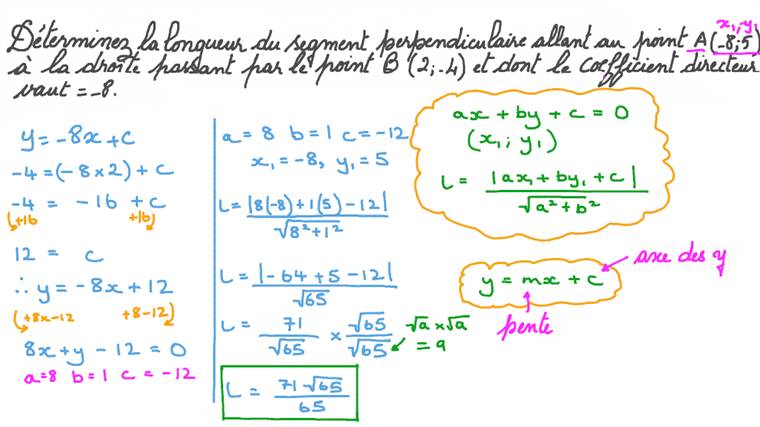 x₁, y₁
Déterminez la longueur du segment perpendiculaire allant au point A(-8;5)
à la droite passant par le point B (2;-4) et dont le coefficient directeur
vaut = -8.
y = -8x + c
-4 = (-8 × 2) + c
-4 = -16 + c
+16 +16
12 = c
∴ y = -8x + 12
+8x-12 +8-12
8x + y - 12 = 0
a=8 b=1 c = -12
a = 8 b = 1 c = -12
x₁ = -8, y₁ = 5
L = |8(-8) + 1(5) - 12| / √8² + 1²
L = |-64 + 5 - 12| / √65
L = 71/√65 × √65/√65
√a × √a
= a
L = 71√65 / 65
ax + by + c = 0
(x₁ ; y₁)
L = |ax₁ + by₁ + c| / √a² + b²
axe des y
y = mx + c
pente